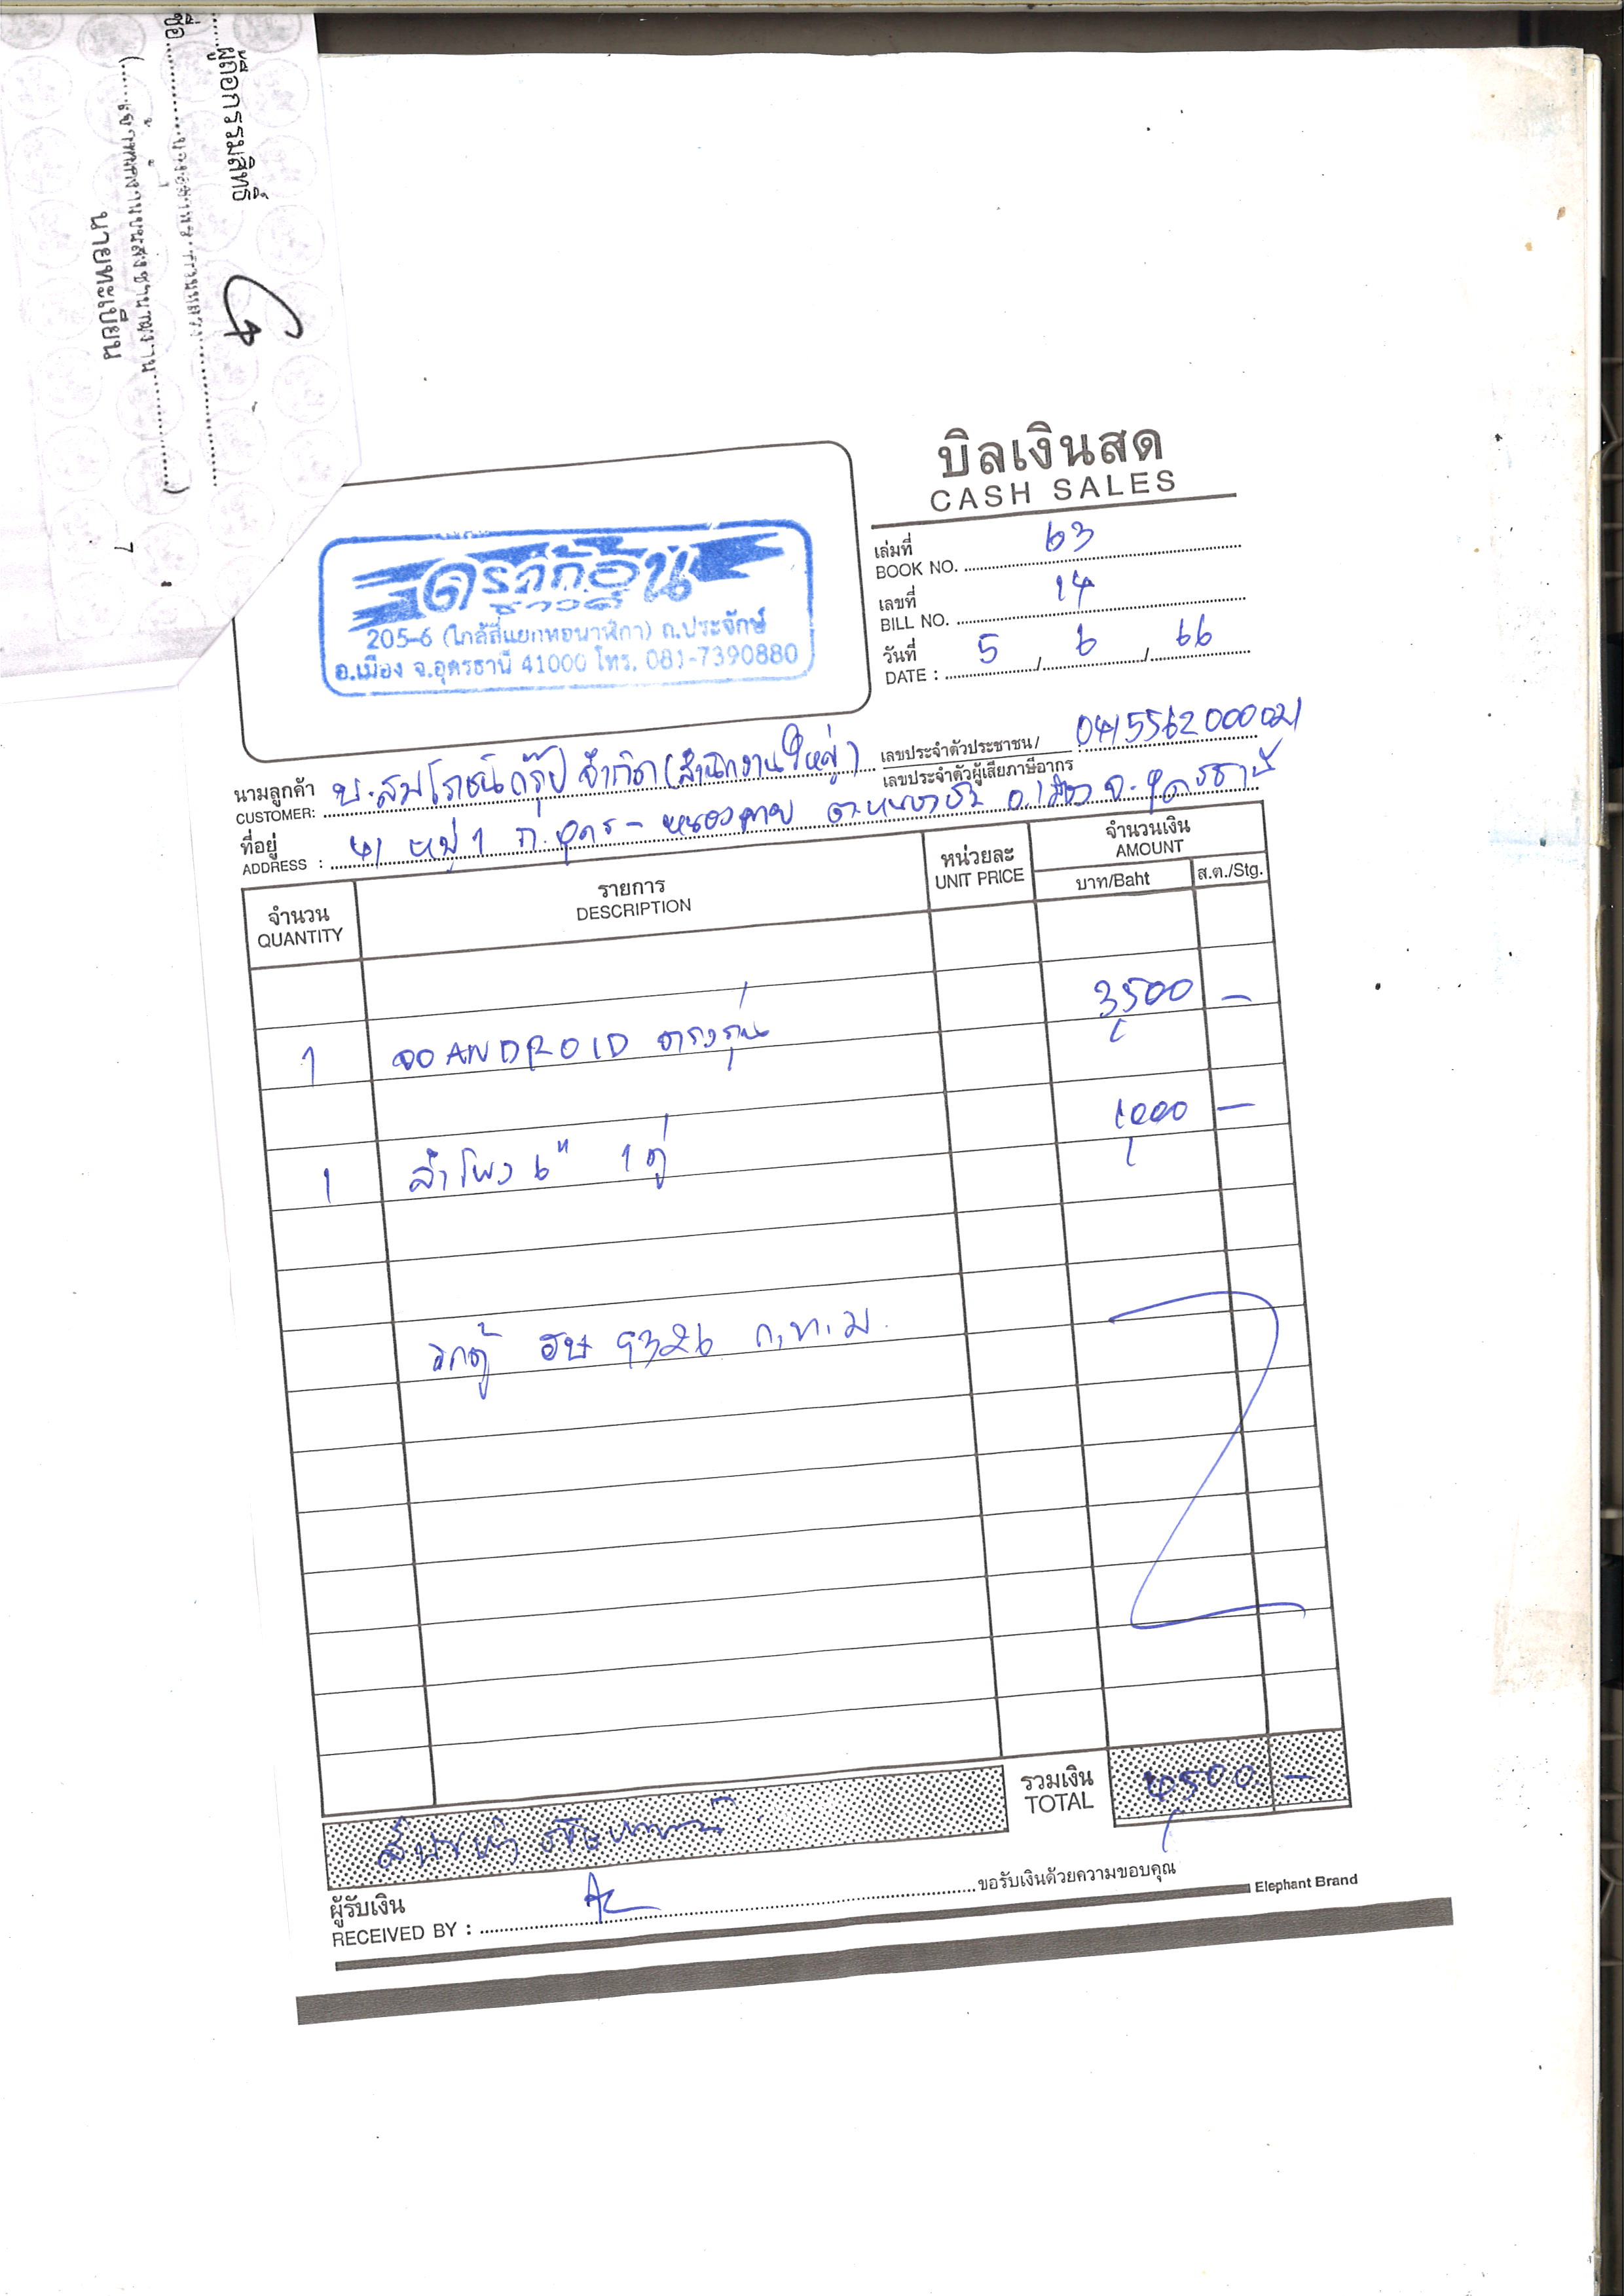 ผู้ถือกรรมสิทธิ์
นายทะเบียน
7
บิลเงินสด
CASH SALES
ดราก้อน
205-6 (ใกล้สี่แยกหอนาฬิกา) ถ.ประจักษ์
อ.เมือง จ.อุดรธานี 41000 โทร. 081-7390880
เล่มที่
BOOK NO. 63
เลขที่
BILL NO. 14
วันที่
DATE : 5 / 6 / 66
นามลูกค้า
CUSTOMER: บ.สมโภชน์กรุ๊ป จำกัด (สำนักงานใหญ่)
เลขประจำตัวประชาชน/
เลขประจำตัวผู้เสียภาษีอากร 0415562000021
ที่อยู่
ADDRESS : 41 หมู่ 1 ถ.อุดร-หนองคาย อ.เมือง จ.อุดรธานี
จำนวน
QUANTITY
รายการ
DESCRIPTION
หน่วยละ
UNIT PRICE
จำนวนเงิน
AMOUNT
บาท/Baht
ส.ต./Stg.
1 จอ ANDROID ตรงรุ่น 3,500 -
1 ลำโพง 6" 1 คู่ 1,000 -
รถตู้ ฮษ 9326 ก.ท.ม.
รวมเงิน
TOTAL 4,500 -
ผู้รับเงิน
RECEIVED BY :
ขอรับเงินด้วยความขอบคุณ
Elephant Brand